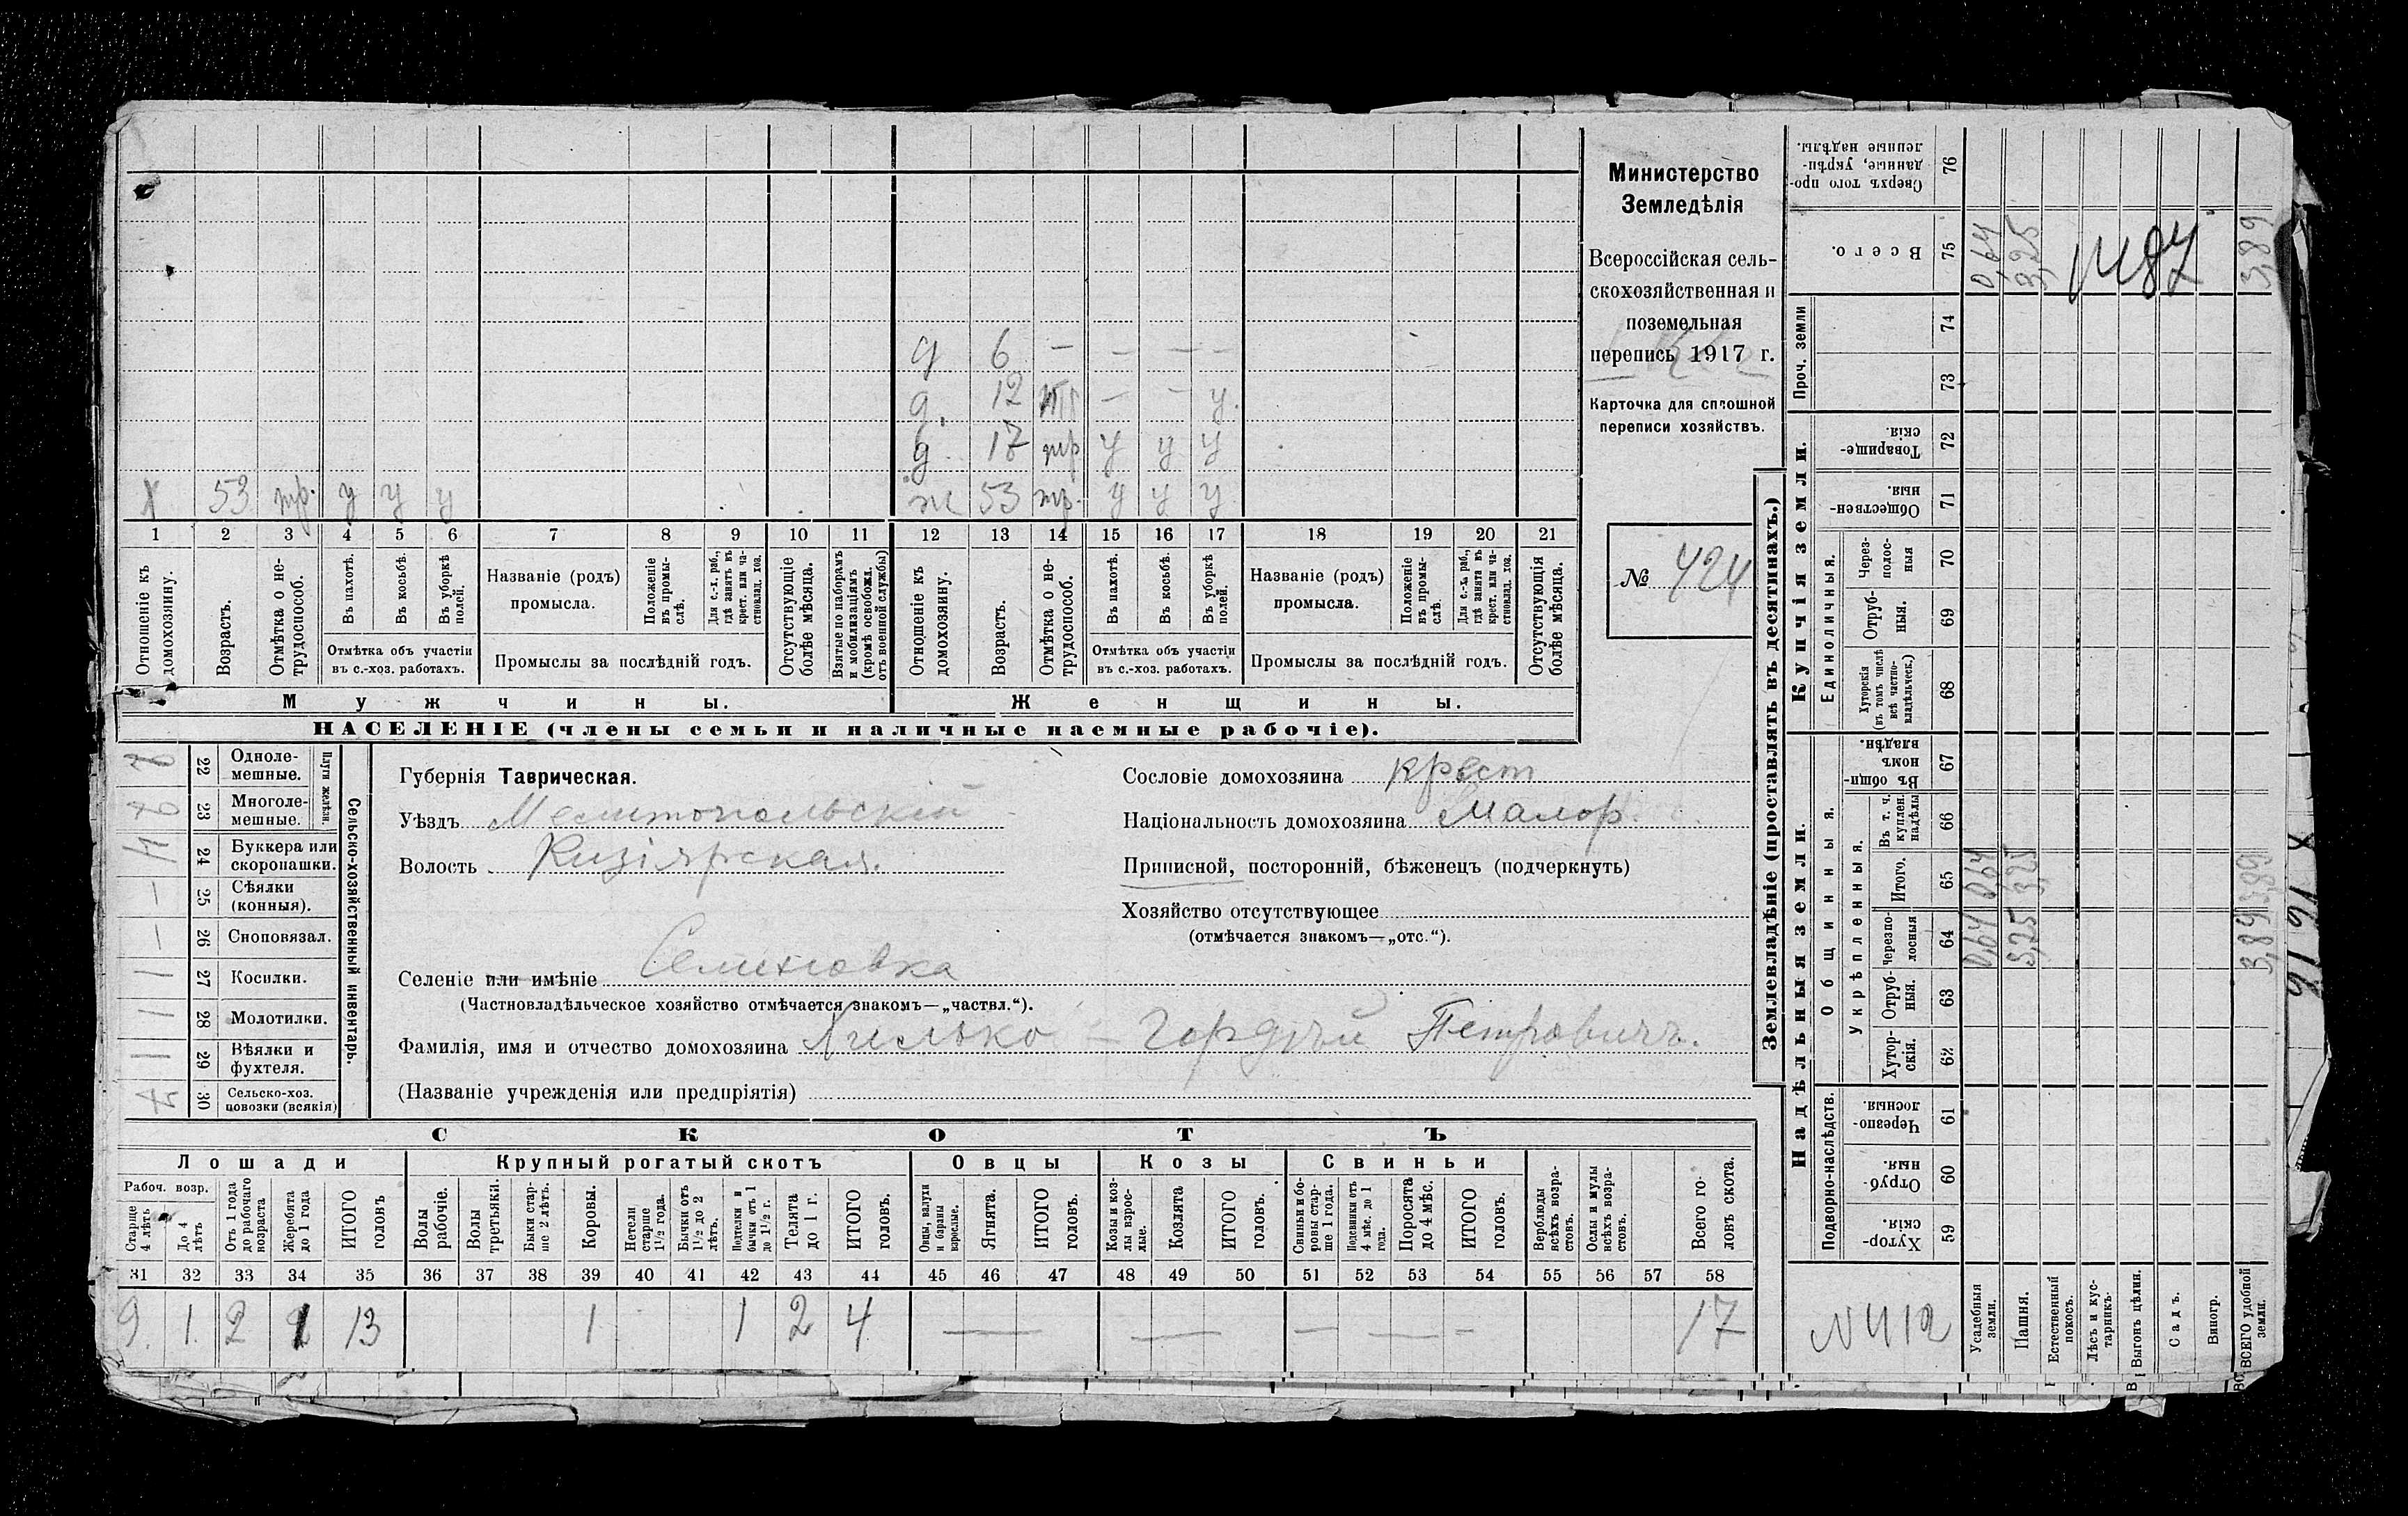 д 6 — — — —
д. 12 тр — — у.
д 17 тр у у у
х 53 тр. у у у
ж 53 тр. у у у
1 2 3 4 5 6 7 8 9 10 11 12 13 14 15 16 17 18 19 20 21
Отношеніе къ домохозяину.
Возрастъ.
Отмѣтка о не-трудоспособ.
Въ пахотѣ.
Въ косьбѣ.
Въ уборкѣ полей.
Отмѣтка объ участіи
въ с.-хоз. работахъ.
Названіе (родъ)
промысла.
Положеніе въ промы-слѣ.
Для с.-х. раб., гдѣ занятъ въ крест. или ча-стновлад. хоз.
Промыслы за послѣдній годъ.
Отсутствующіе болѣе мѣсяца.
Взятые по наборамъ и мобилизаціямъ (кромѣ освобожд. отъ военной службы)
Отношеніе къ домохозяину.
Возрастъ.
Отмѣтка о не-трудоспособ.
Въ пахотѣ.
Въ косьбѣ.
Въ уборкѣ полей.
Отмѣтка объ участіи
въ с.-хоз. работахъ.
Названіе (родъ)
промысла.
Положеніе въ промы-слѣ.
Для с.-х. раб., гдѣ занята въ крест. или ча-стновлад. хоз.
Промыслы за послѣдній годъ.
Отсутствующія болѣе мѣсяца.
Мужчины.
Женщины.
НАСЕЛЕНІЕ (члены семьи и наличные наемные рабочіе).
Министерство
Земледѣлія
Всероссійская сель-
скохозяйственная и
поземельная
перепись 1917 г.
Карточка для сплошной
переписи хозяйствъ.
№ 424
22 Одноле-мешные.
23 Многоле-мешные.
Плуги желѣзн.
24 Буккера или скоропашки.
25 Сѣялки (конныя).
26 Сноповязал.
27 Косилки.
28 Молотилки.
29 Вѣялки и фухтеля.
30 Сельско-хоз. повозки (всякія)
Сельско-хозяйственный инвентарь.
Губернія Таврическая.
Уѣздъ Мелитопольскій
Волость Кизіярская.
Селеніе или имѣніе Семеновка
(Частновладѣльческое хозяйство отмѣчается знакомъ—„частвл.“).
Фамилія, имя и отчество домохозяина Хилько — Гордѣй Петровичъ.
(Названіе учрежденія или предпріятія)
Сословіе домохозяина крест
Національность домохозяина Малор.
Приписной, посторонній, бѣженецъ (подчеркнуть)
Хозяйство отсутствующее
(отмѣчается знакомъ—„отс.“).
СКОТЪ
Лошади
Крупный рогатый скотъ
Овцы
Козы
Свиньи
Рабоч. возр.
Старше 4 лѣтъ
До 4 лѣтъ
Отъ 1 года до рабочаго возраста
Жеребята до 1 года
ИТОГО головъ
Волы рабочіе.
Волы третьяки.
Быки стар-ше 2 лѣтъ.
Коровы.
Нетели старше 1 1/2 года.
Бычки отъ 1 1/2 до 2 лѣтъ.
Подтелки и бычки отъ 1 до 1 1/2 г.
Телята до 1 г.
ИТОГО головъ.
Овцы, валухи и бараны взрослые.
Ягнята.
ИТОГО головъ.
Козы и коз-лы взрос-лые.
Козлята
ИТОГО головъ.
Свиньи и бо-ровы стар-ше 1 года.
Подсвинки отъ 4 мѣс. до 1 года.
Поросята до 4 мѣс.
ИТОГО головъ.
Верблюды всѣхъ возра-стовъ.
Ослы и мулы всѣхъ возра-стовъ.
Всего го-ловъ скота.
31 32 33 34 35 36 37 38 39 40 41 42 43 44 45 46 47 48 49 50 51 52 53 54 55 56 57 58
9. 1. 2 1 13 1 1 2 4 — — — — — 17
Землевладѣніе (проставлять въ десятинахъ.)
Купчія земли.
Надѣльныя земли.
Сверхъ того про-данные, укрѣп-ленные надѣлы. 76
Всего. 75 0,64 3,25 3,89
№87
Проч. земли 74 73
Товарище-скія. 72
Обществен-ныя. 71
Единоличныя.
Через-полос-ныя 70
Отруб-ныя. 69
Хуторскія (въ томъ числѣ всѣ частно-владѣльческ.) 68
Общинныя.
Въ общин-номъ владѣн. 67
Укрѣпленныя.
Въ т. ч. куплен. надѣлы 66
Итого. 65 0,64 3,25 3,89
Черезпо-лосныя 64 0,64 3,25 3,89
Отруб-ныя. 63
Хутор-скія. 62
Подворно-наслѣдств.
Черезпо-лосныя. 61
Отруб-ныя. 60
Хутор-скія. 59
N 412
Усадебныя земли.
Пашня.
Естественный покосъ.
Лѣсъ и кус-тарникъ.
Выгонъ цѣлин.
Садъ.
Виногр.
ВСЕГО удобной земли.